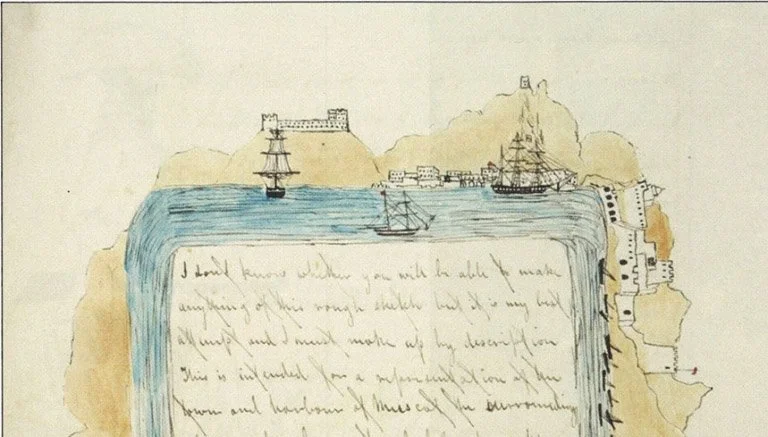 I don't know whether you will be able to make
anything of this rough sketch but it is my best
attempt and I must make up by description
This is intended for a representation of the
town and harbour of Muscat the surrounding